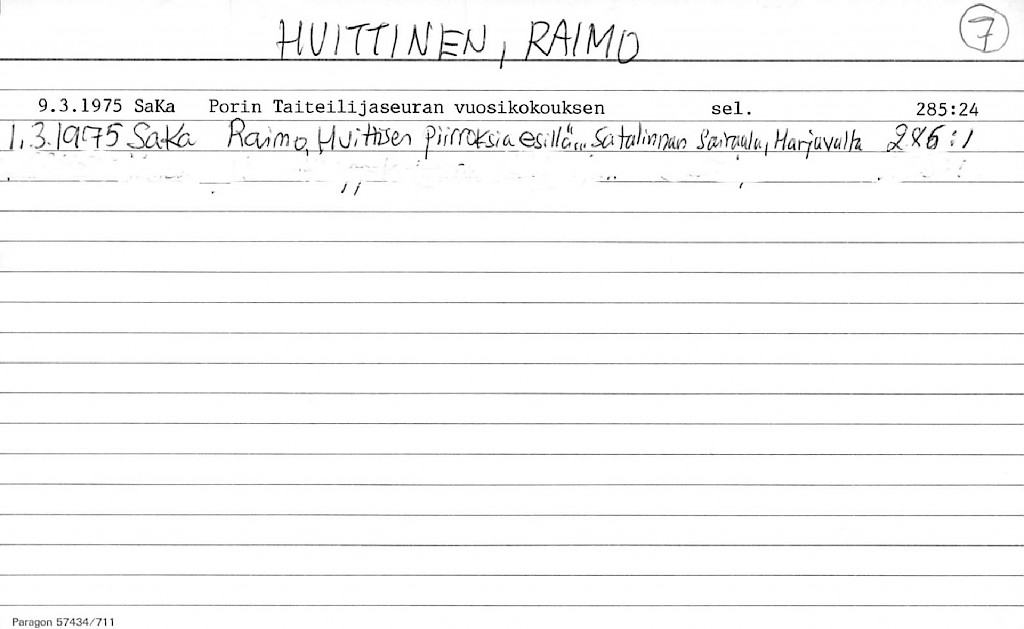 HUITTINEN, RAIMO
7
9.3.1975 SaKa Porin Taiteilijaseuran vuosikokouksen sel. 285:24
1.3.1975 SaKa Raimo Huittisen piirroksia esillä... Satalinnan Sairaala, Harjavalta 286:1
Paragon 57434/711